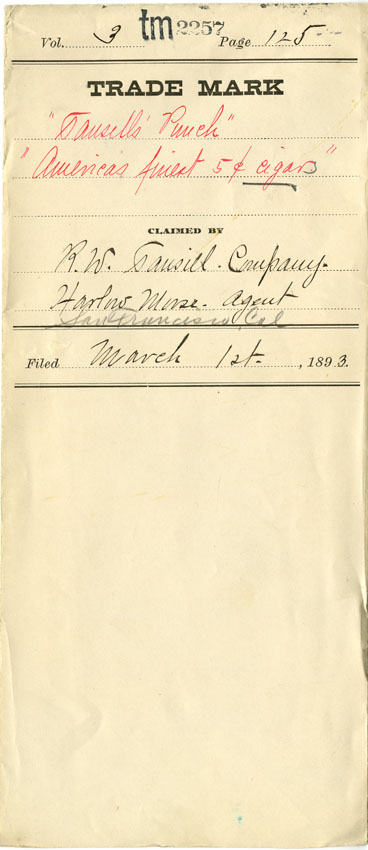 tm 2257
Vol. 3 Page 125
TRADE MARK
"Tansill's Punch"
"Americas finest 5¢ cigars"
CLAIMED BY
R.W. Tansill Company.
Harlow Morse. Agent
San Francisco Cal
Filed March 1st. , 1893.